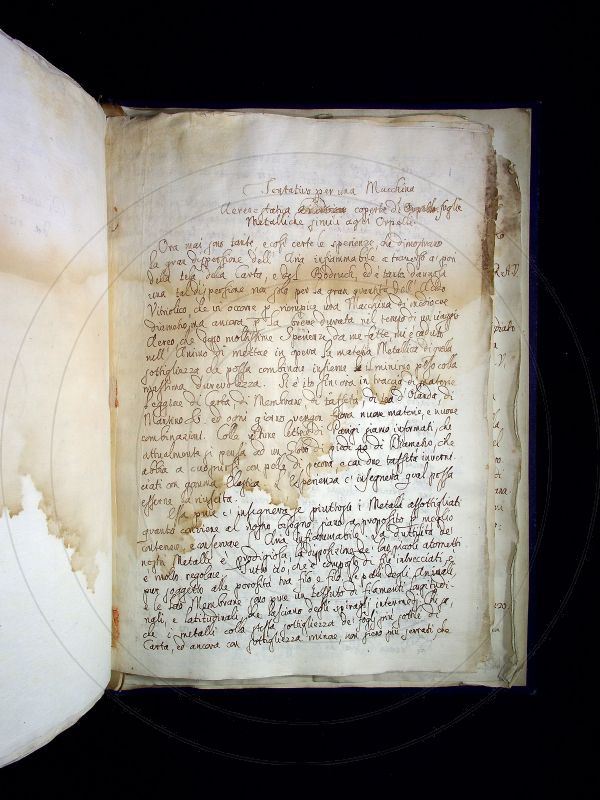 Tentativo per una Macchina
Aereostatica coperta di foglie
Metalliche simili agli Orpelli
Ora mai sono tante, e così certe le sperienze che dimostrano
la gran dispersione dell' Aria infiammabile a traverso a' pori
della tela della Carta, e degl' Bodruch, ed è tanto dannosa
una tal dispersione non solo per la gran quantità dell' Acido
Vitriolico, che vi occorre p riempire una Macchina di mediocre
diametro, ma ancora p la breve durata nel tempo di un viaggio
Aereo, che dopo moltissime Sperienze da me fatte mi è caduto
nell' Animo di mettere in opera la materia Metallica di quella
sottigliezza da potersi combinare insieme il minimo peso colla
massima durevolezza. Si è ito finora in traccia di materie
leggiere di Carta di Membrane di taffetà, di tela d'Olanda, di
Mantino &c. ed ogni giorno vengon fuora nuove materie, e nuove
combinazioni. Colle ultime lettere di Parigi siamo informati, che
attualmente si pensa ad un Globo di piedi di Diametro, che
abbia a cuoprirsi con pelle di pecora e con due taffetà inverni-
ciati con gomma Elastica. L' esperienza c' insegnerà qual possa
esserne la riuscita.
Essa pure c' insegnerà se piuttosto i Metalli assottigliati
quanto conviene al nostro bisogno siano a proposito p meglio
contenere, e conservare l' Aria infiammabile. La duttilità dei
nostri Metalli è prodigiosa, la disposizione de' loro piccoli atometti
è molto regolare. Tutto ciò, che è composto di fila intrecciati è
pur soggetto alla porosità tra filo e filo, le pelli degli Animali,
e le loro Membrane sono pure un tessuto di filamenti longitudi-
nali, e latitudinali, che lasciano degli spiragli intermedi
che i metalli colla stessa sottigliezza dei fogli più sottili di
Carta, ed ancora con sottigliezza minore, non siano più serrati che